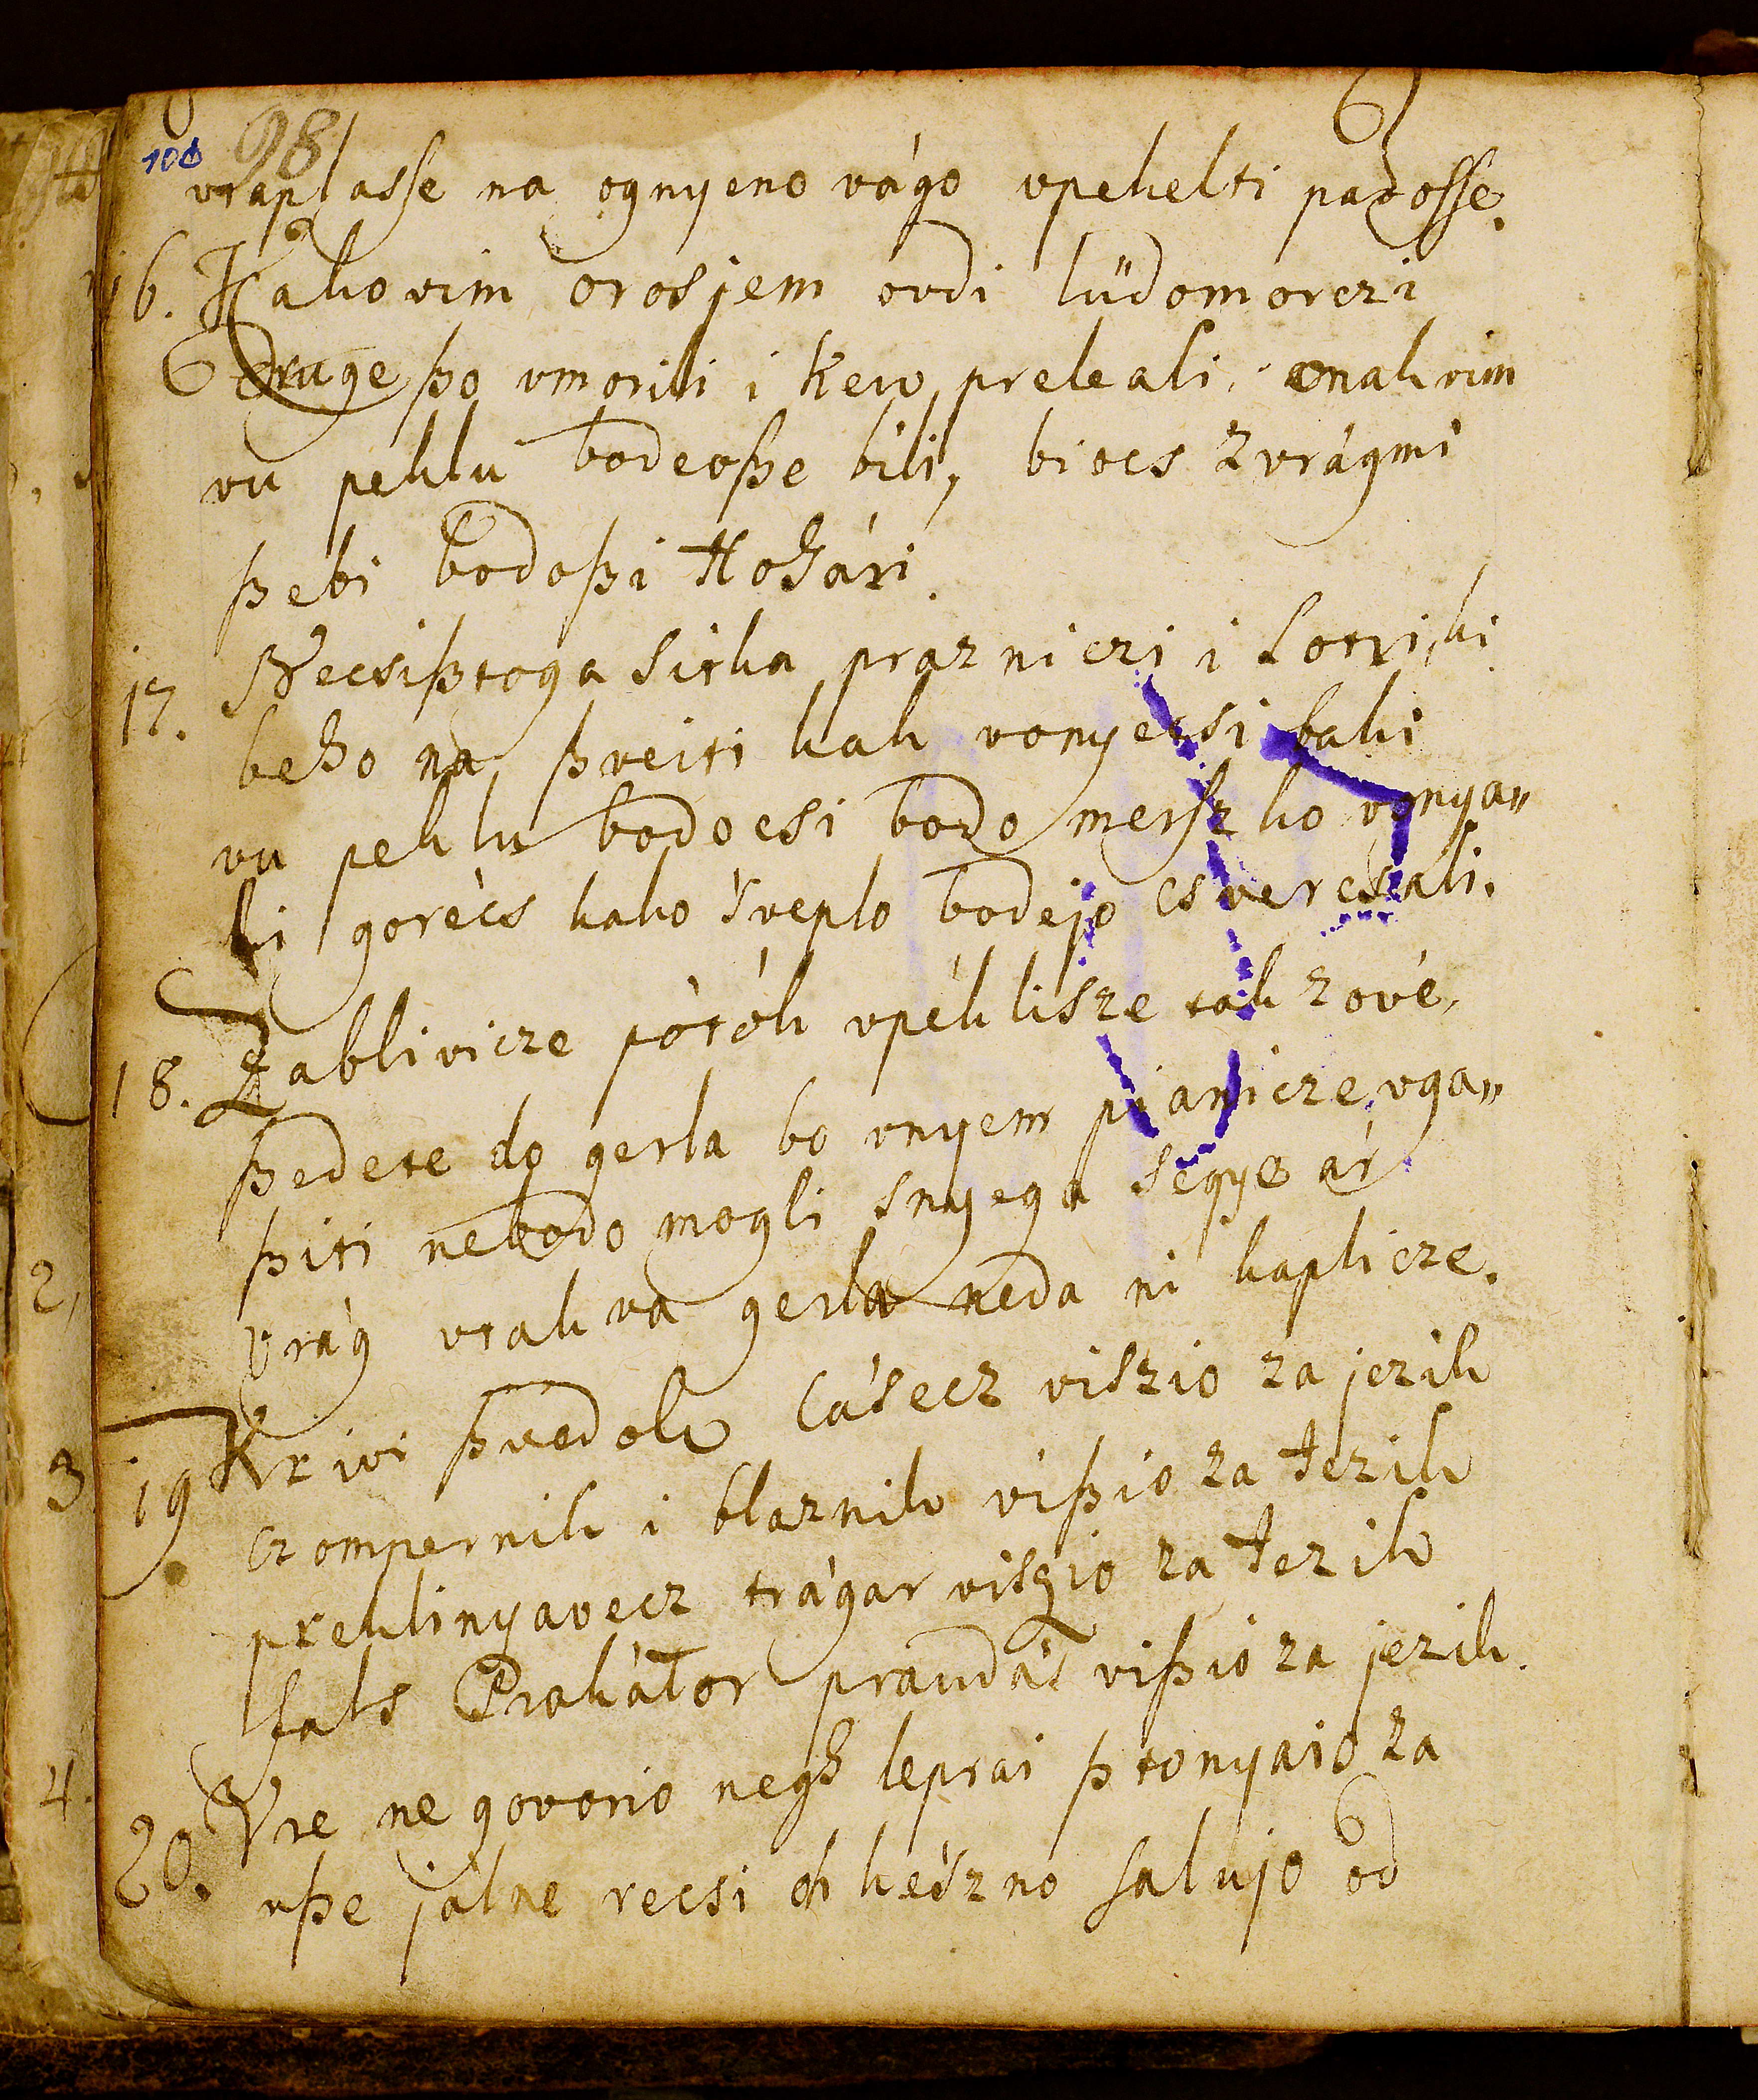 100 98
vraplasse na ognyeno vágo vpekelti padosse.
16. Kakovim orosjem ovdi lüdomorczi
druge ßo vmorili i kerv preleali, onakvim
vu peklu bodeoße bili, biocs zvrágmi
ßebi bodoßi Hoħári.
17. Necsißtoga sitka prazniczi i Lotri, ki
beħo na ßveiti kak vonyecsi baki
vu peklu bodocsi bodo merszko vonya„
li gorécs kako sveplo bodejo csvercsali.
18. Zablivicze pótók vpéklisze tak zové,
ßedete do gerla bo vnyem pianicze, vga„
ßiti nebodo mogli snyega segye ár
vrág vtakva gerla neda ni kaplicze.
19. Krivi ßvedok lásecz viszio za jezik
czompernik i blaznik vißio za Jezik
preklinyavecz trágar viszio za Jezik
fals Prokátor pravdás vißió za jezik.
20. Vre ne govorio negħ leprai ßtonyaio za
vße jálne recsi oh készno salujo od
2,
3
4.